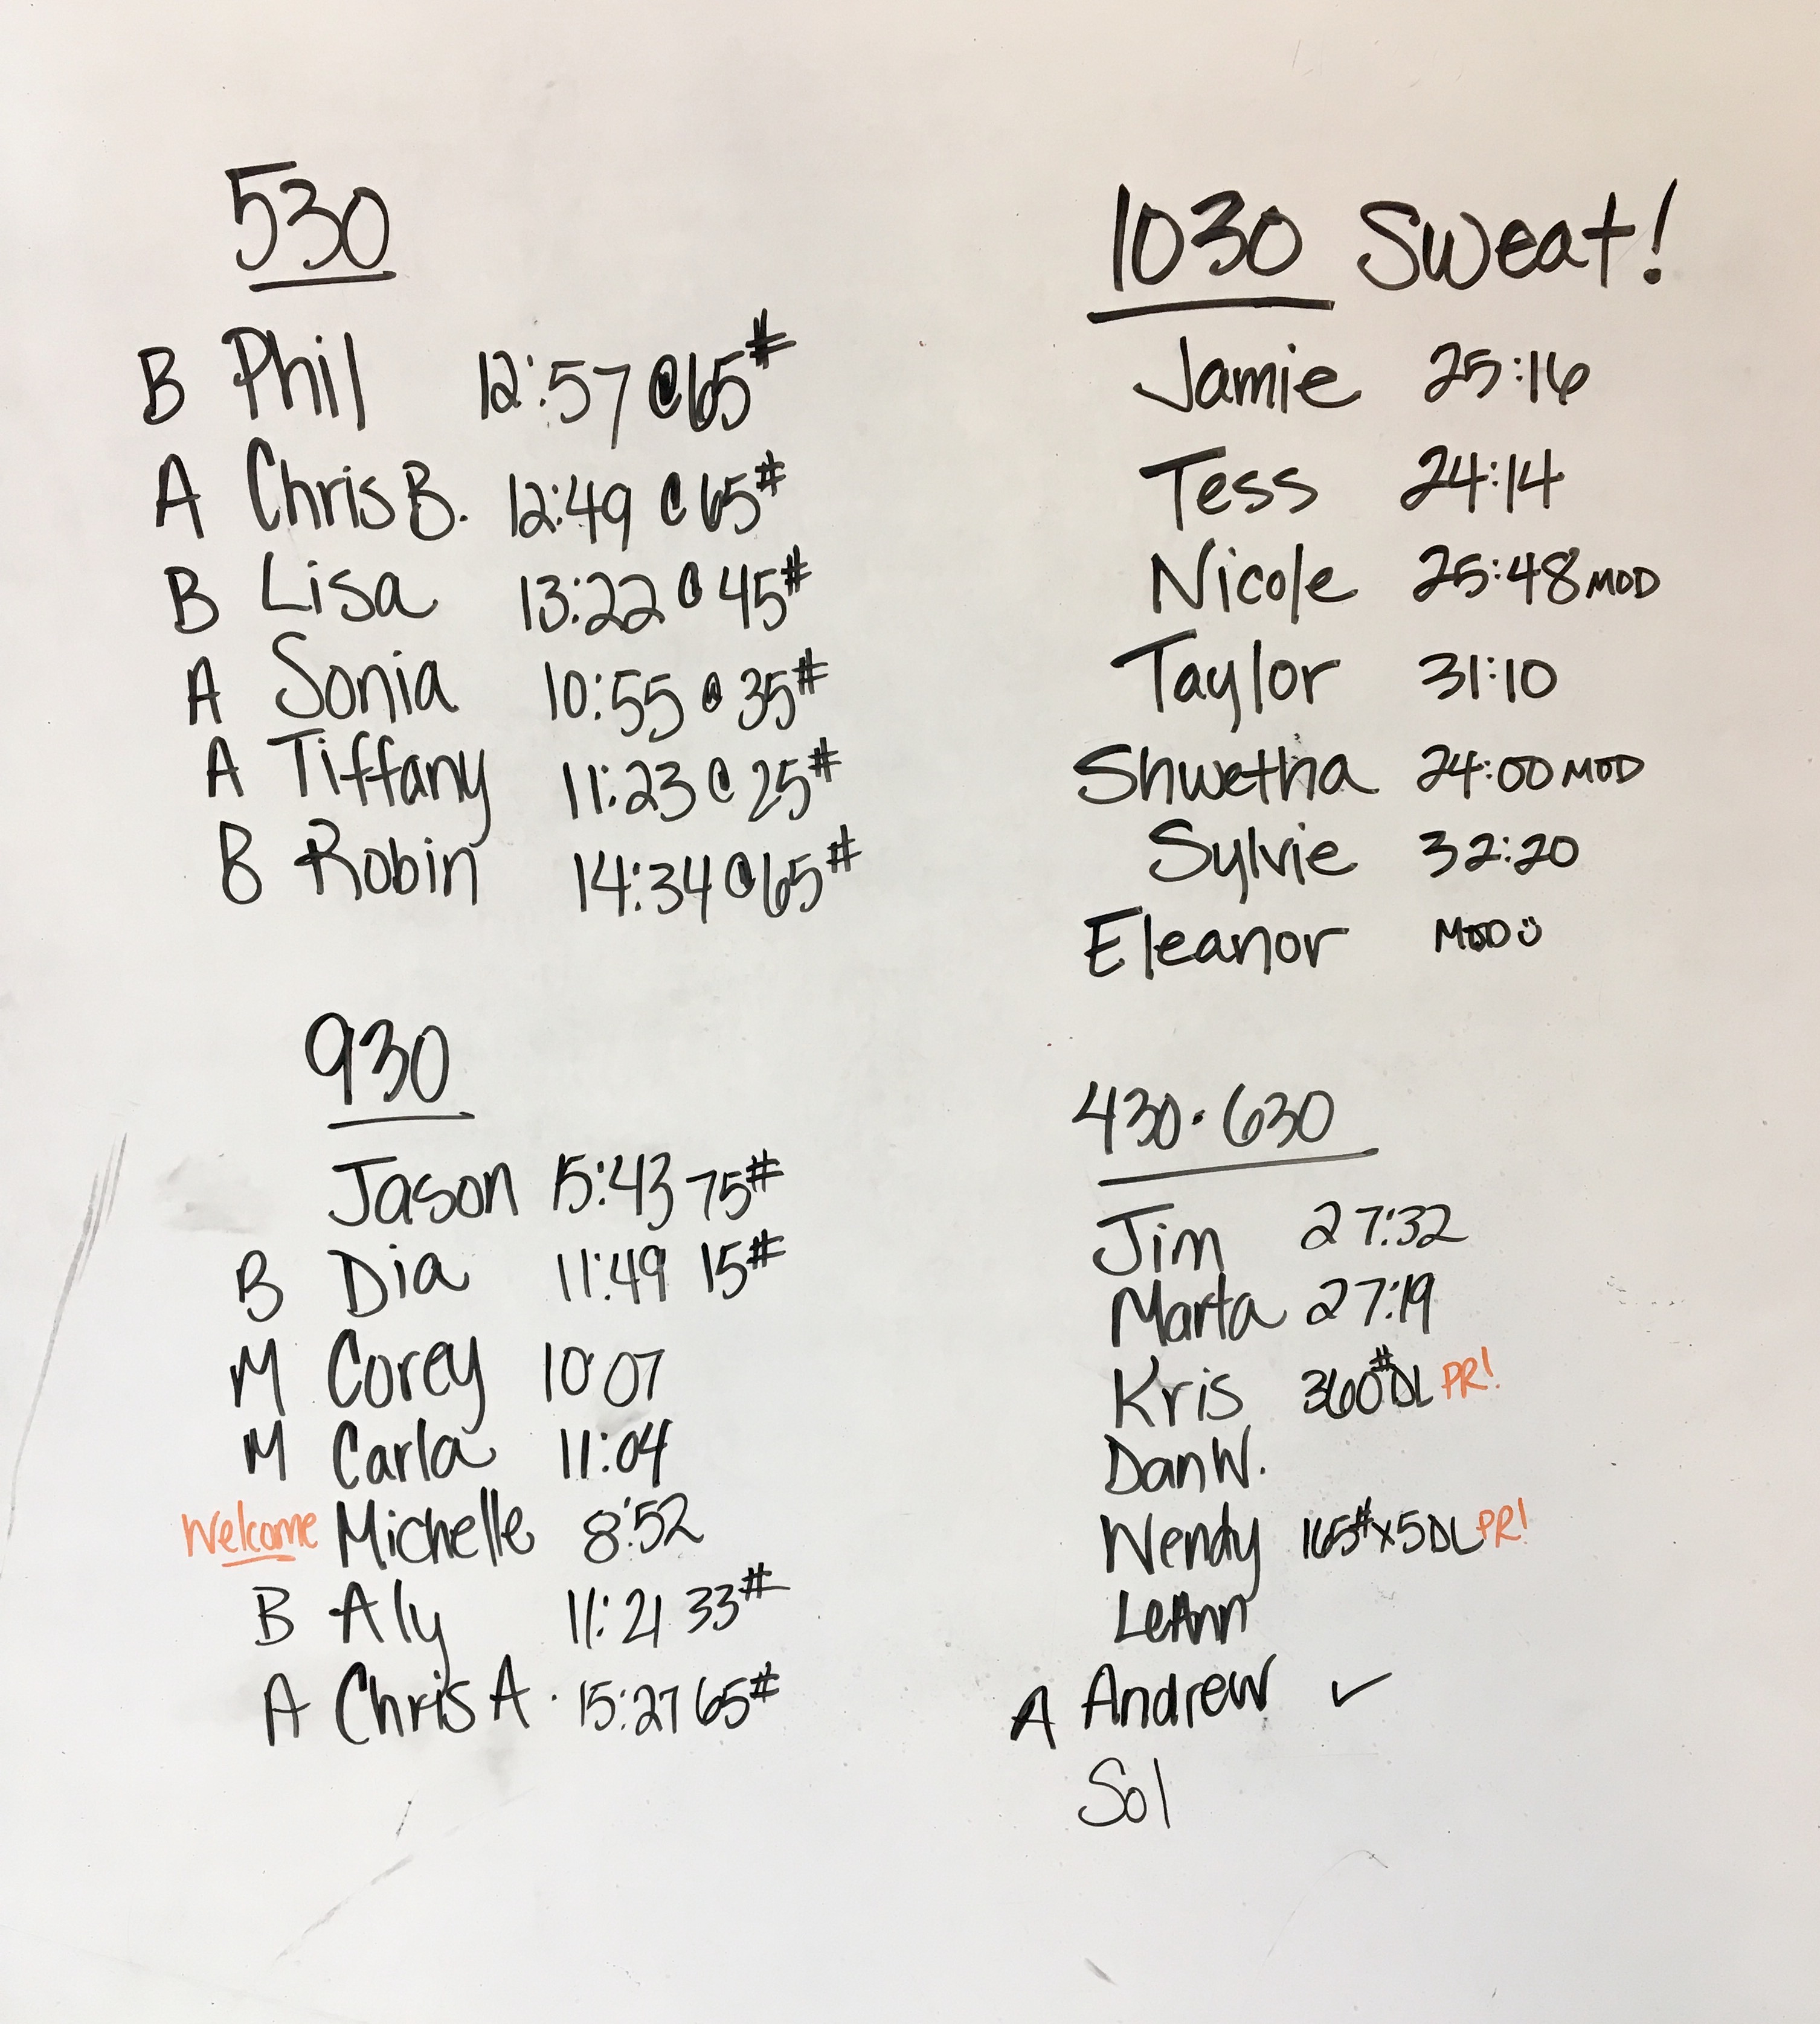 530
B Phil 12:57 @65#
A Chris B. 12:49 @ 65#
B Lisa 13:22 @ 45#
A Sonia 10:55 @ 35#
A Tiffany 11:23 @ 25#
B Robin 14:34 @65#
930
Jason 15:43 75#
B Dia 11:49 15#
M Corey 10:07
M Carla 11:04
Welcome Michelle 8:52
B Aly 11:21 33#
A Chris A. 15:27 65#
1030 Sweat!
Jamie 25:16
Tess 24:14
Nicole 25:48 MOD
Taylor 31:10
Shwetha 24:00 MOD
Sylvie 32:20
Eleanor MOD ☺
430·630
Jim 27:32
Marta 27:19
Kris 360# DL PR!
Dan W.
Wendy 165# x5 DL PR!
LeAnn
A Andrew ✓
Sol